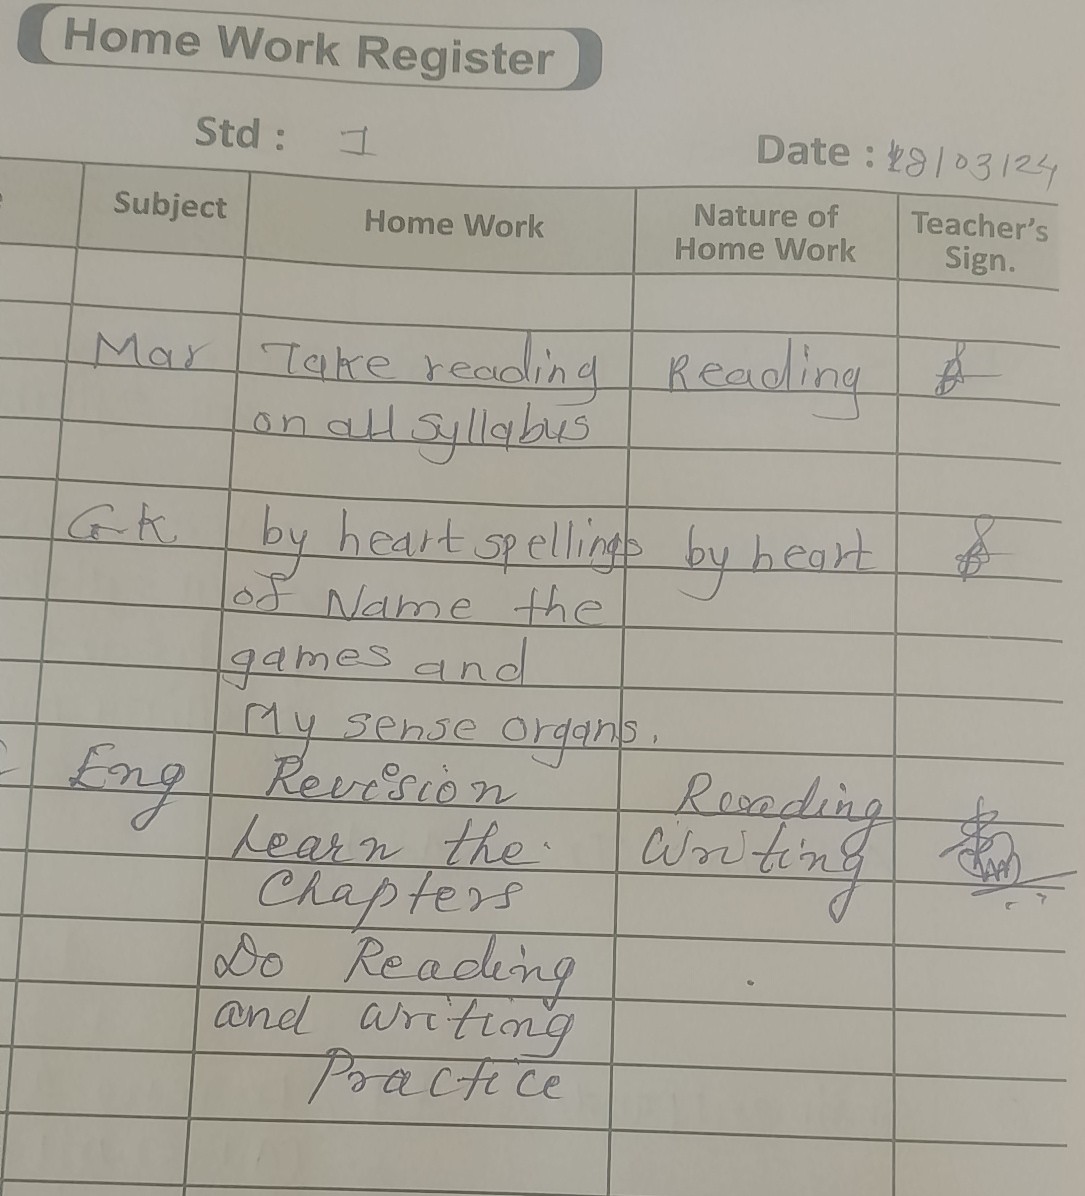 Home Work Register
Std : 1
Date : 28/03/24
Subject Home Work Nature of Home Work Teacher's Sign.
Mar Take reading Reading
on all syllabus
GK by heart spellings by heart
of Name the
games and
My sense organs.
Eng Revision Reading
Learn the Writing
Chapters
Do Reading
and writing
Practice